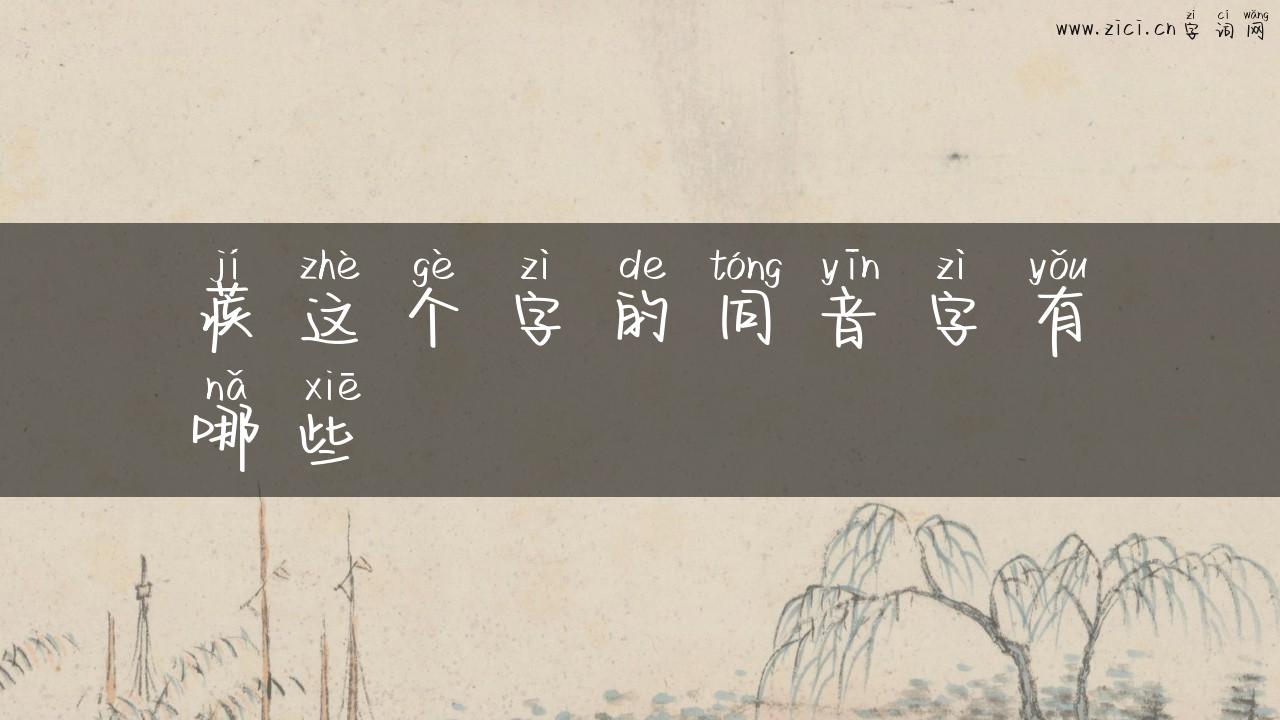 www.zici.cn 字词网
zì cí wǎng
jí zhè gè zì de tóng yīn zì yǒu
蒺这个字的同音字有
nǎ xiē
哪些